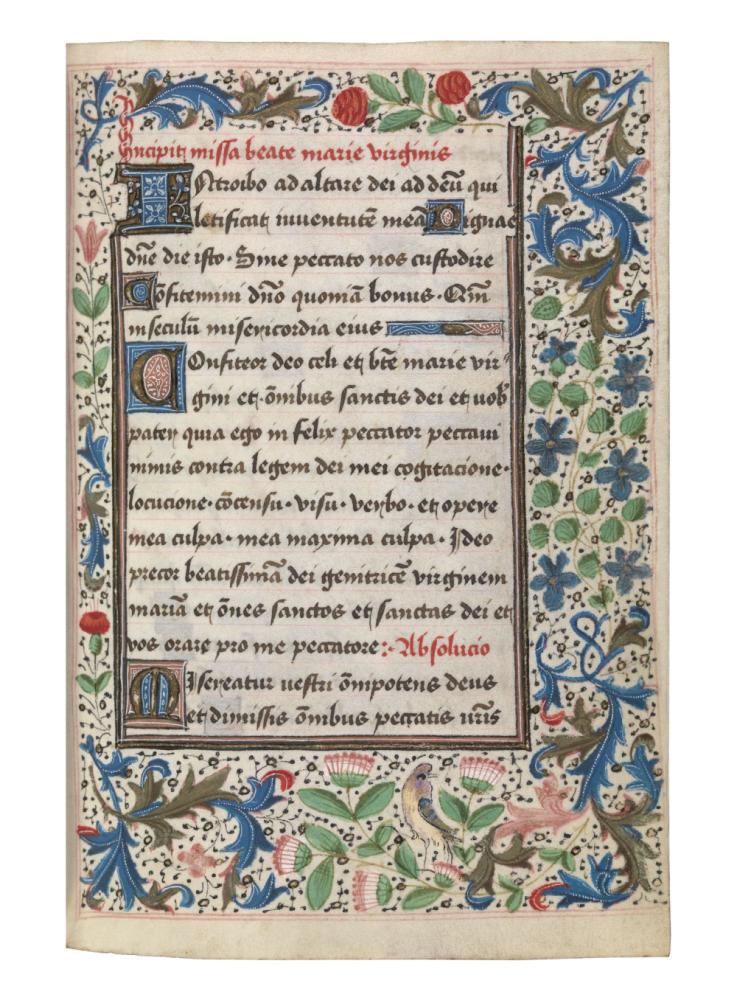 Incipit missa beate marie virginis
INtroibo ad altare dei ad deū qui
letificat iuventutē meā Dignae
dn̄e die isto · Sine peccato nos custodire
Cōfitemini dn̄o quoniā bonus · Qm̄
in seculū misericordia eius
COnfiteor deo celi et bt̄e marie vir-
gini et · ōnibus sanctis dei et vob̄
pater quia ego in felix peccator peccaui
nimis contra legem dei mei cogitacione ·
locucione · cōcensu · visu · verbo · et opere
mea culpa · mea maxima culpa · Ideo
precor beatissimā dei genitricē virginem
mariā et ōnes sanctos et sanctas dei et
vos orare pro me peccatore :- Absolucio
MIsereatur vestri ōmpotens deus
et dimissis ōnibus peccatis ur̄is